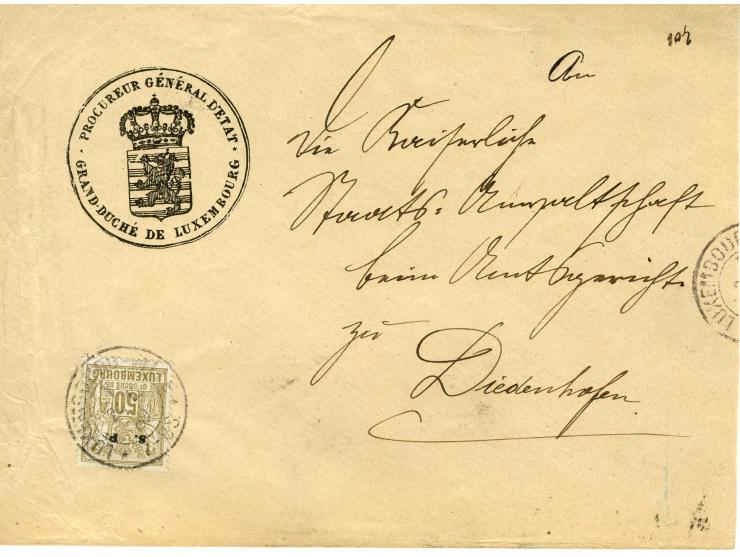 PROCUREUR GÉNÉRAL D'ETAT
GRAND-DUCHÉ DE LUXEMBOURG
An
die Kaiserliche
Staats-Anwaltschaft
beim Amtsgerichte
zu
Diedenhofen.
LUXEMBOURG
Gd DUCHÉ DE
LUXEMBOURG
50
S. P.